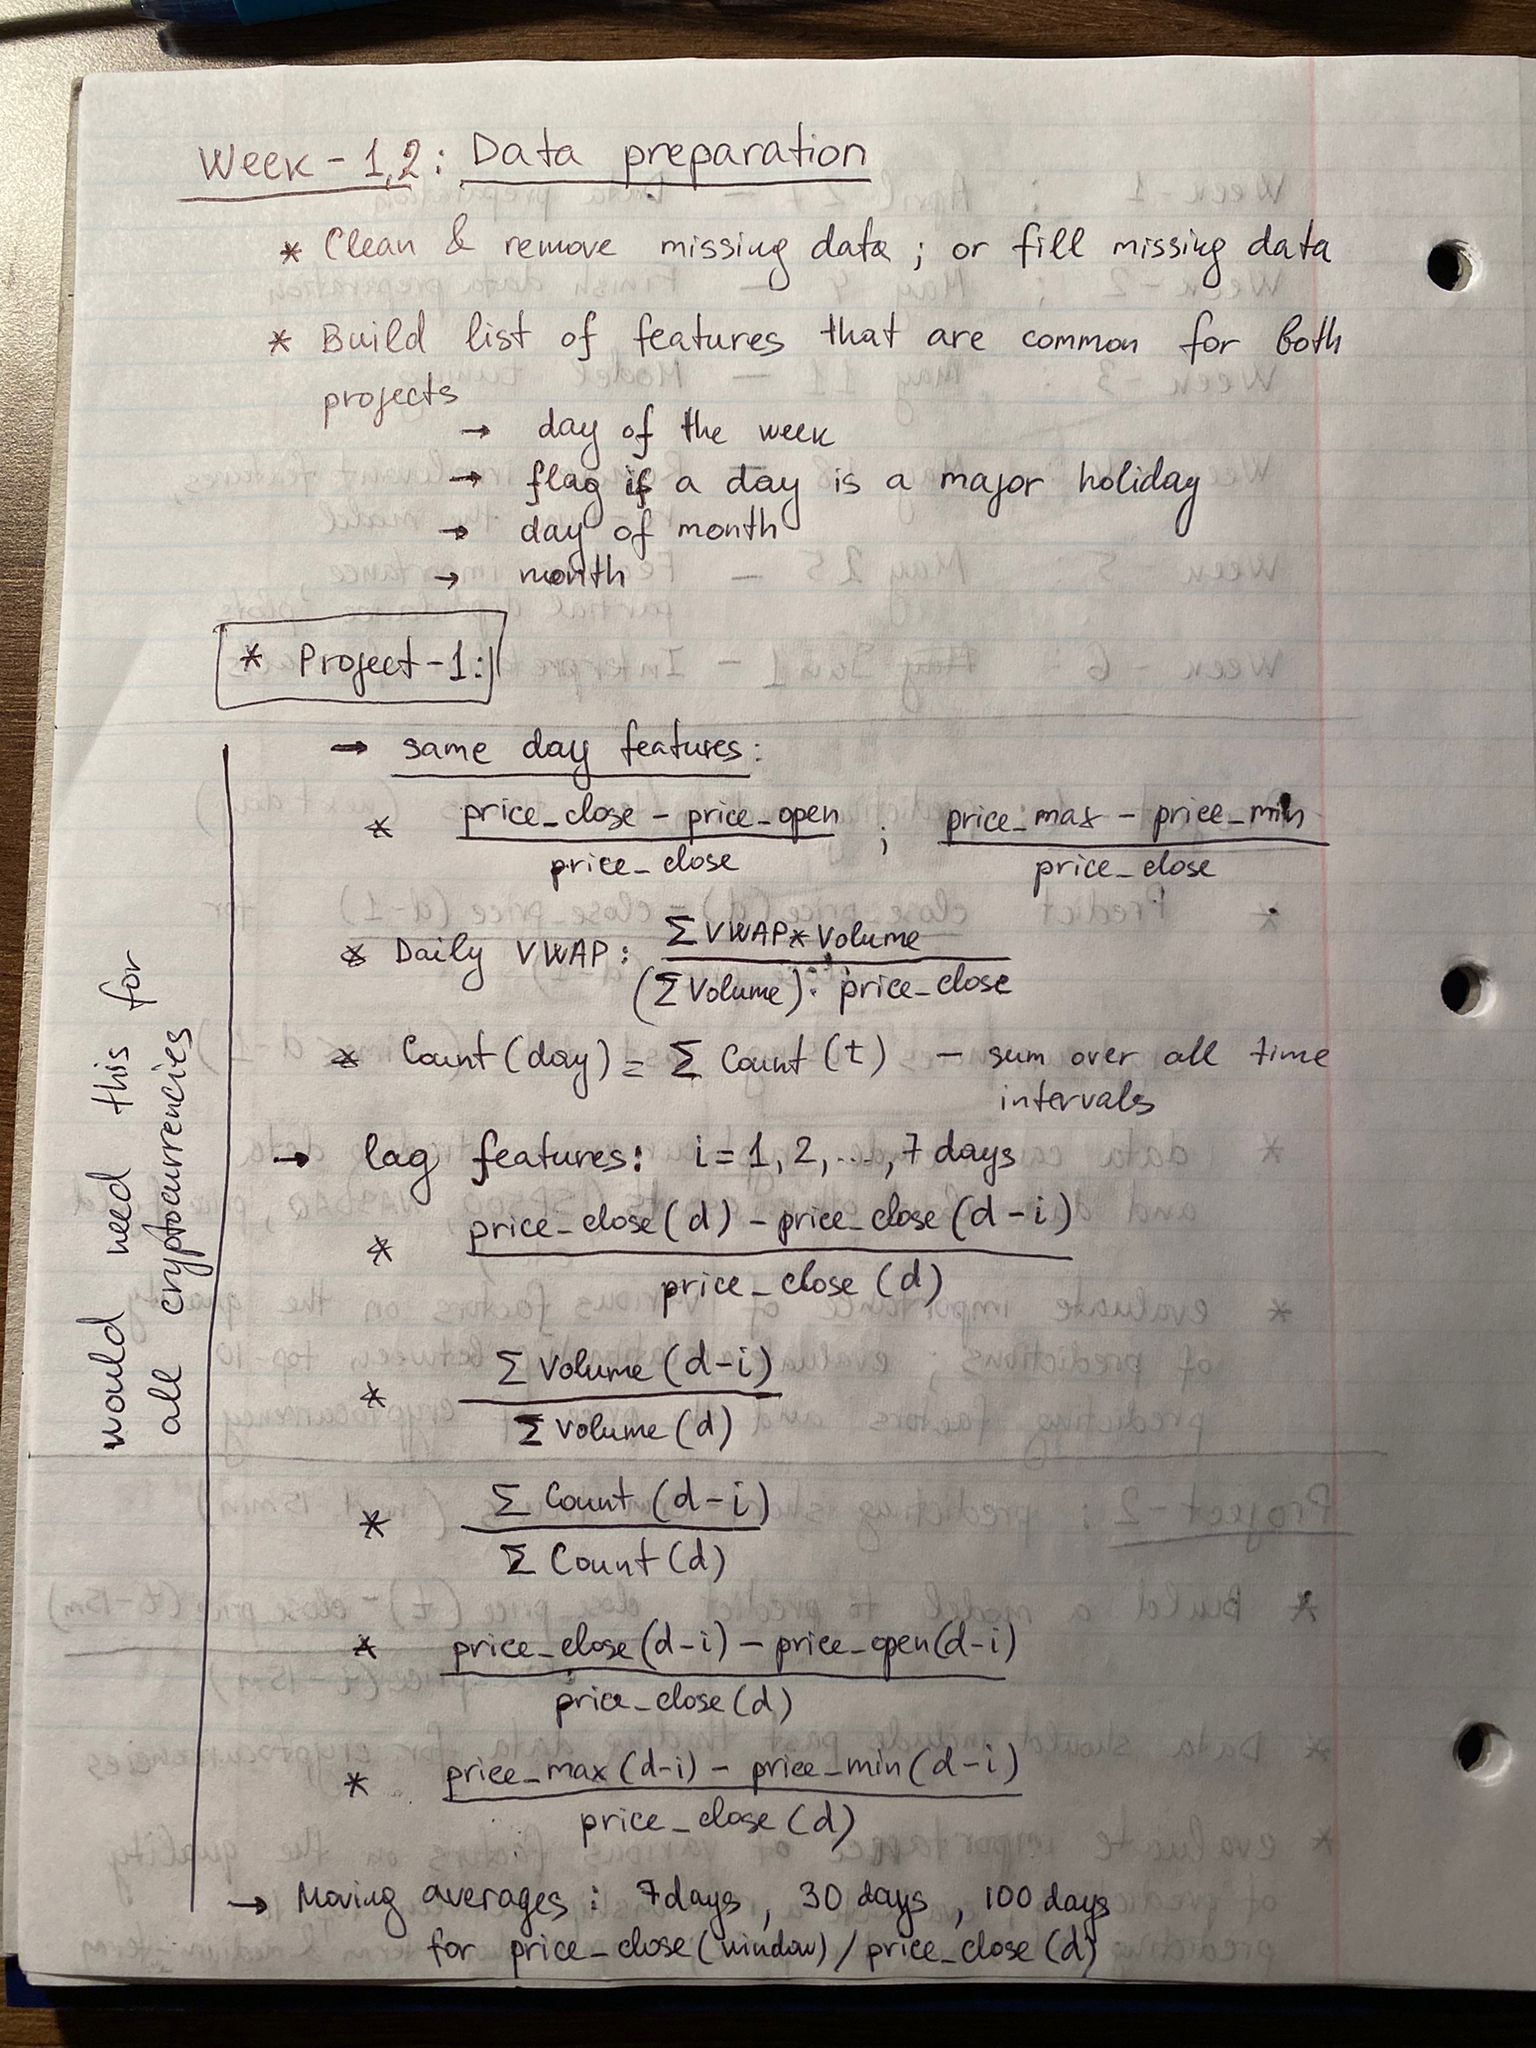 Week - 1,2: Data preparation
* Clean & remove missing data ; or fill missing data
* Build list of features that are common for both
projects
→ day of the week
→ flag if a day is a major holiday
→ day of month
→ month
* Project-1:
→ same day features:
* price_close - price_open ; price_max - price_min
price_close price_close
* Daily VWAP: Σ VWAP * Volume
(Σ Volume) · price_close
* Count (day) = Σ Count (t) - sum over all time
intervals
→ lag features: i = 1, 2, ..., 7 days
* price_close (d) - price_close (d - i)
price_close (d)
* Σ Volume (d-i)
Σ Volume (d)
* Σ Count (d-i)
Σ Count (d)
* price_close (d-i) - price_open (d-i)
price_close (d)
* price_max (d-i) - price_min (d-i)
price_close (d)
→ Moving averages : 7 days, 30 days, 100 days
for price_close (window) / price_close (d)
would need this for
all cryptocurrencies